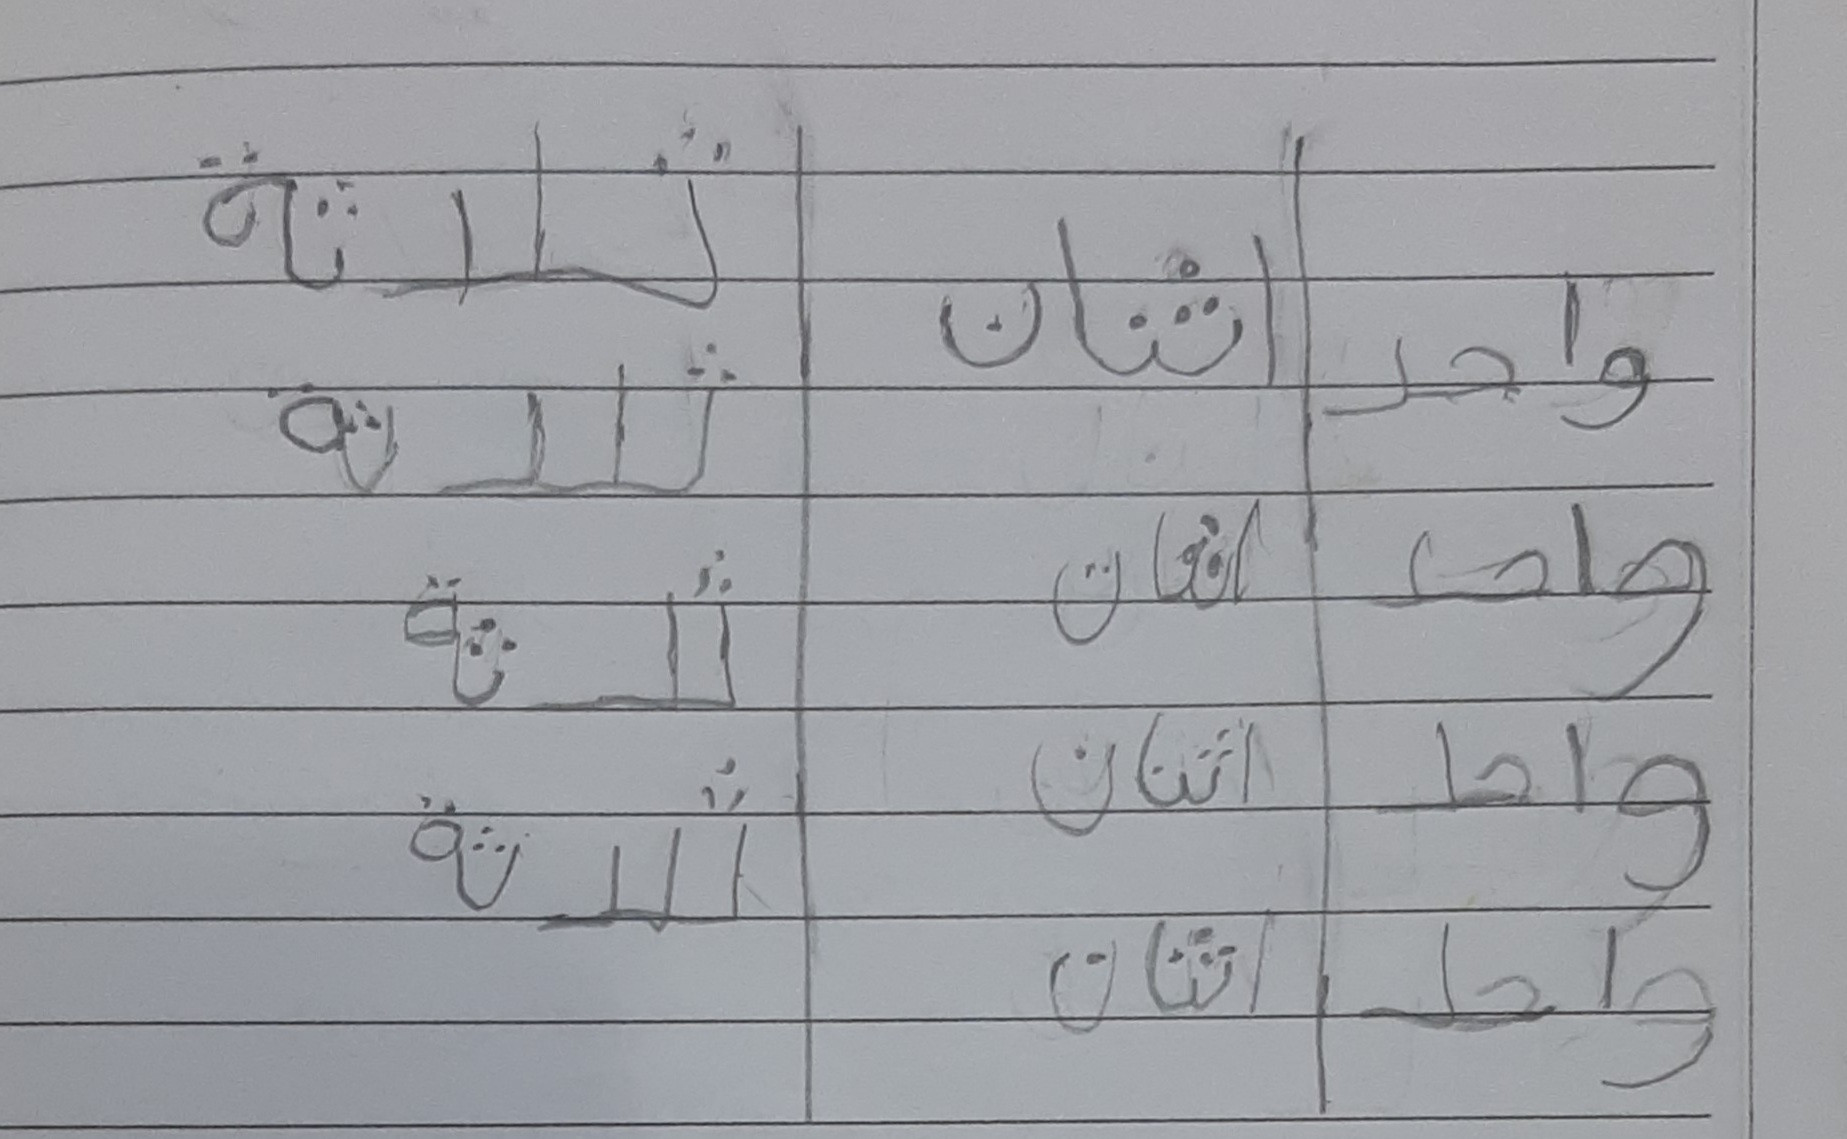 واحد اثنان ثلاثة
واحد اثنان ثلاثة
واحد اثنان ثلاثة
واحد اثنان ثلاثة